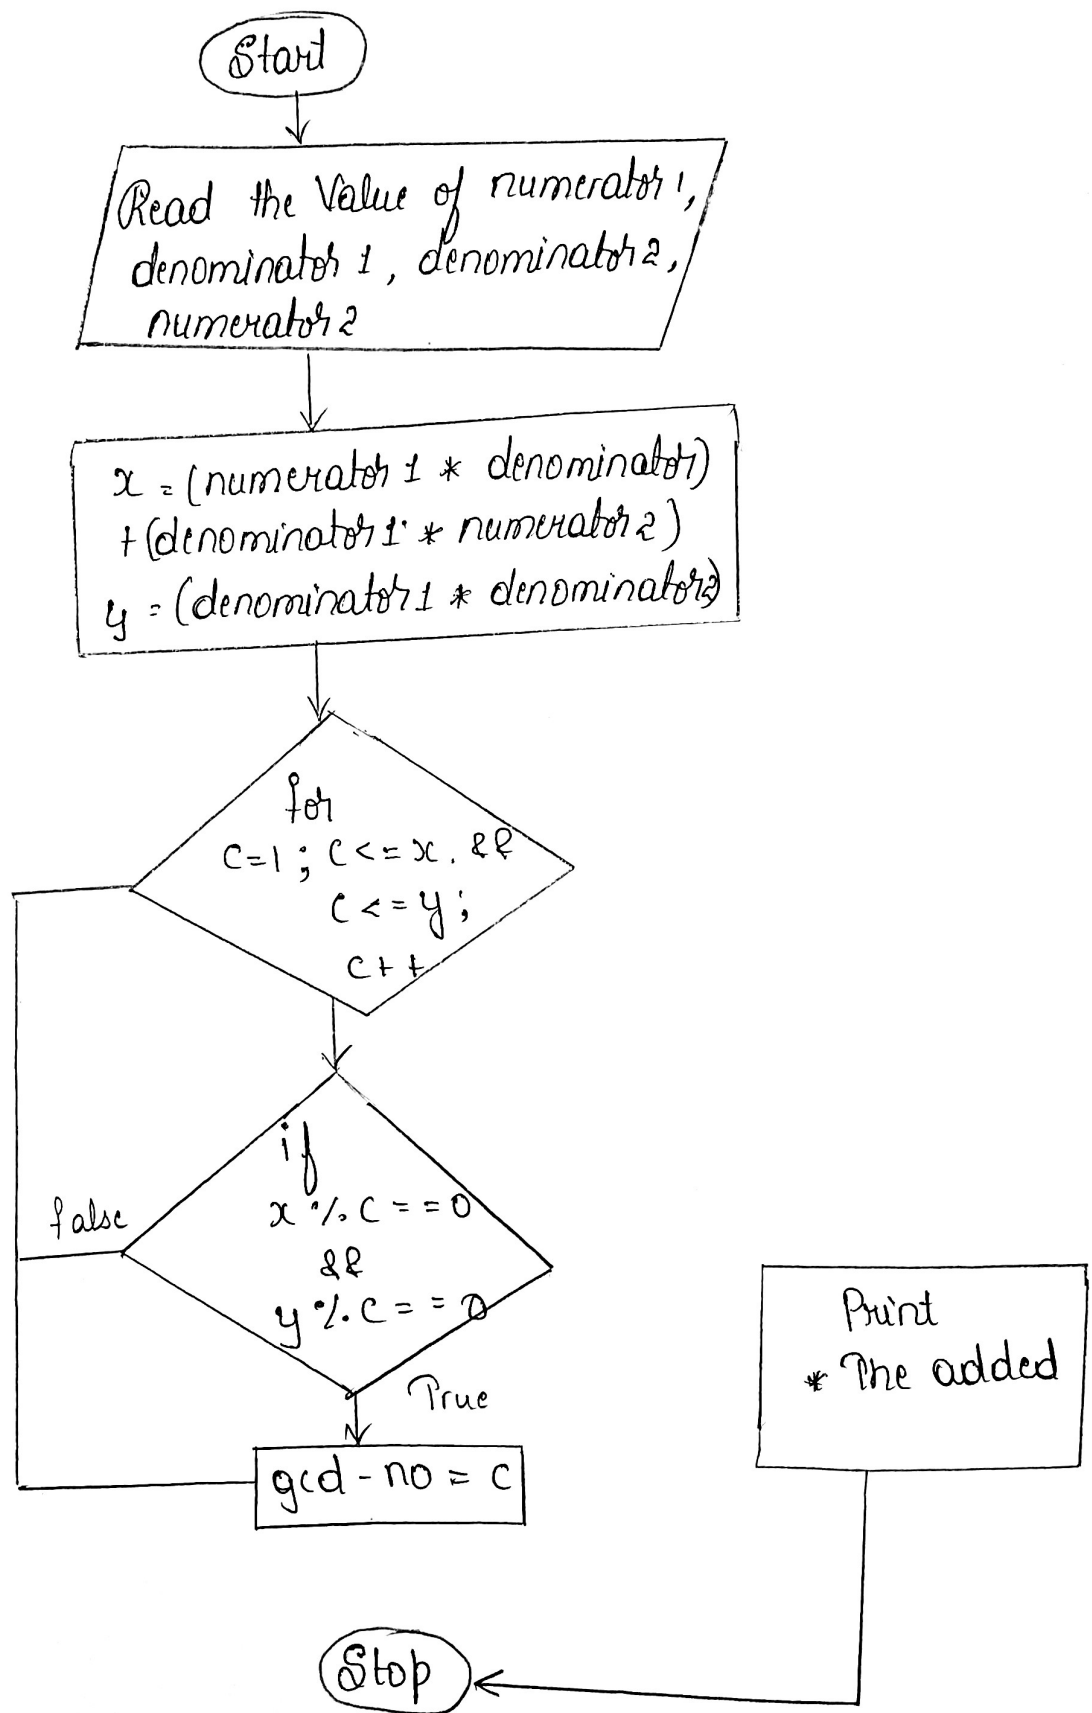 Start
Read the Value of numerator 1,
denominator 1, denominator 2,
numerator 2
x = (numerator 1 * denominator)
+ (denominator 1 * numerator 2)
y = (denominator 1 * denominator 2)
for
C=1; C<=x. &&
C<=y;
C++
if
x % C == 0
&&
y % C == 0
false
True
gcd-no = C
Print
* The added
Stop